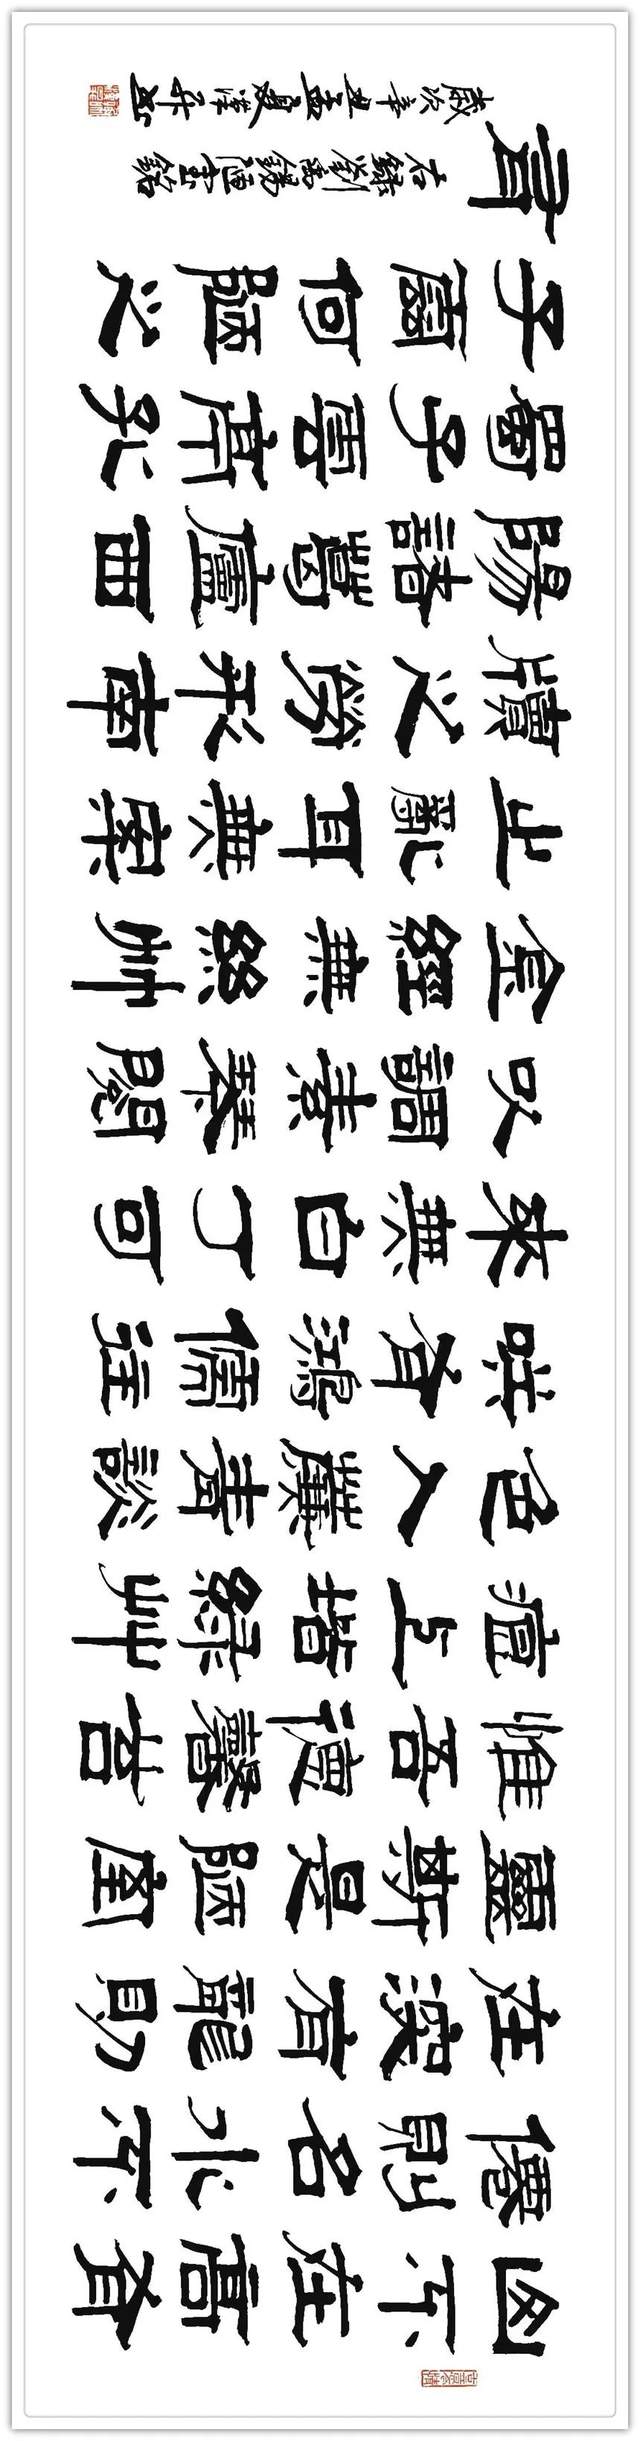 山不在高有
僊則名水不
在深有龍則
靈斯是陋室
惟吾德馨苔
痕上階綠艸
色入簾青談
咲有鴻儒往
來無白丁可
以調素琴閱
金經無絲竹
之亂耳無案
牘之勞形南
陽諸葛廬西
蜀子雲亭孔
子云何陋之
有
右錄劉禹錫陋室銘
歲次辛丑孟夏漢升書